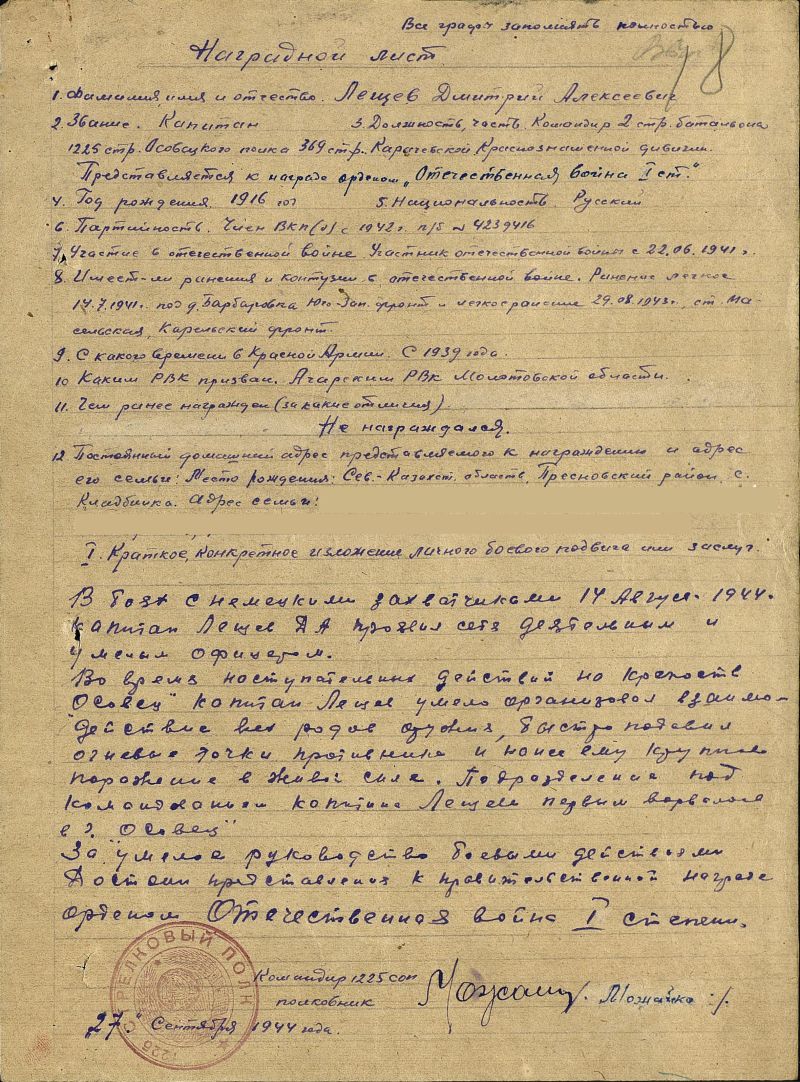 Все графы заполнять полностью
78
Наградной лист
1. Фамилия, имя и отчество. Лещев Дмитрий Алексеевич
2. Звание. Капитан 3. Должность, часть. Командир 2 стр. батальона
1225 стр. Осовецкого полка 369 стр. Карачевской Краснознаменной дивизии.
Представляется к награде орденом „Отечественная война I ст."
4. Год рождения 1916 год 5. Национальность Русский
6. Партийность. Член ВКП(б) с 1942 г. п/б № 4239416
7. Участие в отечественной войне Участник отечественной войны с 22.06.1941 г.
8. Имеет-ли ранения и контузии в отечественной войне. Ранение легкое
14.7.1941 г. под д. Барбаровка Юго-Зап. фронт и легкое ранение 29.08.1943 г., ст. Ма-
сельская, Карельский фронт.
9. С какого времени в Красной Армии. С 1939 года.
10 Каким РВК призван. Ачарским РВК Молотовской области.
11. Чем ранее награжден (за какие отличия)
Не награждался.
12. Постоянный домашний адрес представляемого к награждению и адрес
его семьи: Место рождения: Сев.-Казахст. область, Пресновский район, с.
Кладбинка. Адрес семьи:
I. Краткое, конкретное изложение личного боевого подвига или заслуг.
В боях с немецкими захватчиками 14 Август. 1944.
капитан Лещев ДА проявил себя деятельным и
умелым офицером.
Во время наступательных действий на Крепость
"Осовец" капитан Лещев умело организовал взаимо-
действие всех родов оружия, быстро подавил
огневые точки противника и нанес ему крупное
поражение в живой силе. Подразделение под
командованием капитана Лещева первым ворвалось
в г. Осовец"
За умелое руководство боевыми действиями
Достоин представления к правительственной награде
орденом Отечественная война I степени.
Командир 1225 соп
полковник Можайко
27." Сентября 1944 года.
СТРЕЛКОВЫЙ ПОЛК
1225